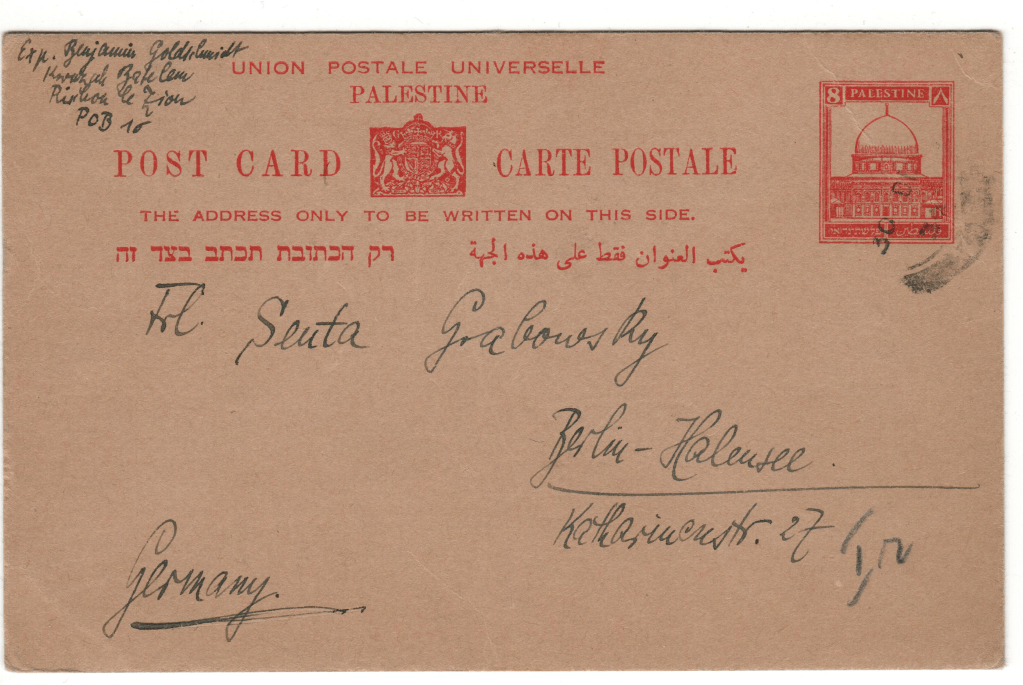 Exp. Benjamin Goldschmidt
Rishon le Zion
POB 10
UNION POSTALE UNIVERSELLE
PALESTINE
POST CARD CARTE POSTALE
THE ADDRESS ONLY TO BE WRITTEN ON THIS SIDE.
רק הכתובת תכתב בצד זה
يكتب العنوان فقط على هذه الجهة
8 PALESTINE ٨
30
Frl. Senta Grabowsky
Berlin-Halensee.
Katharinenstr. 27
Germany.